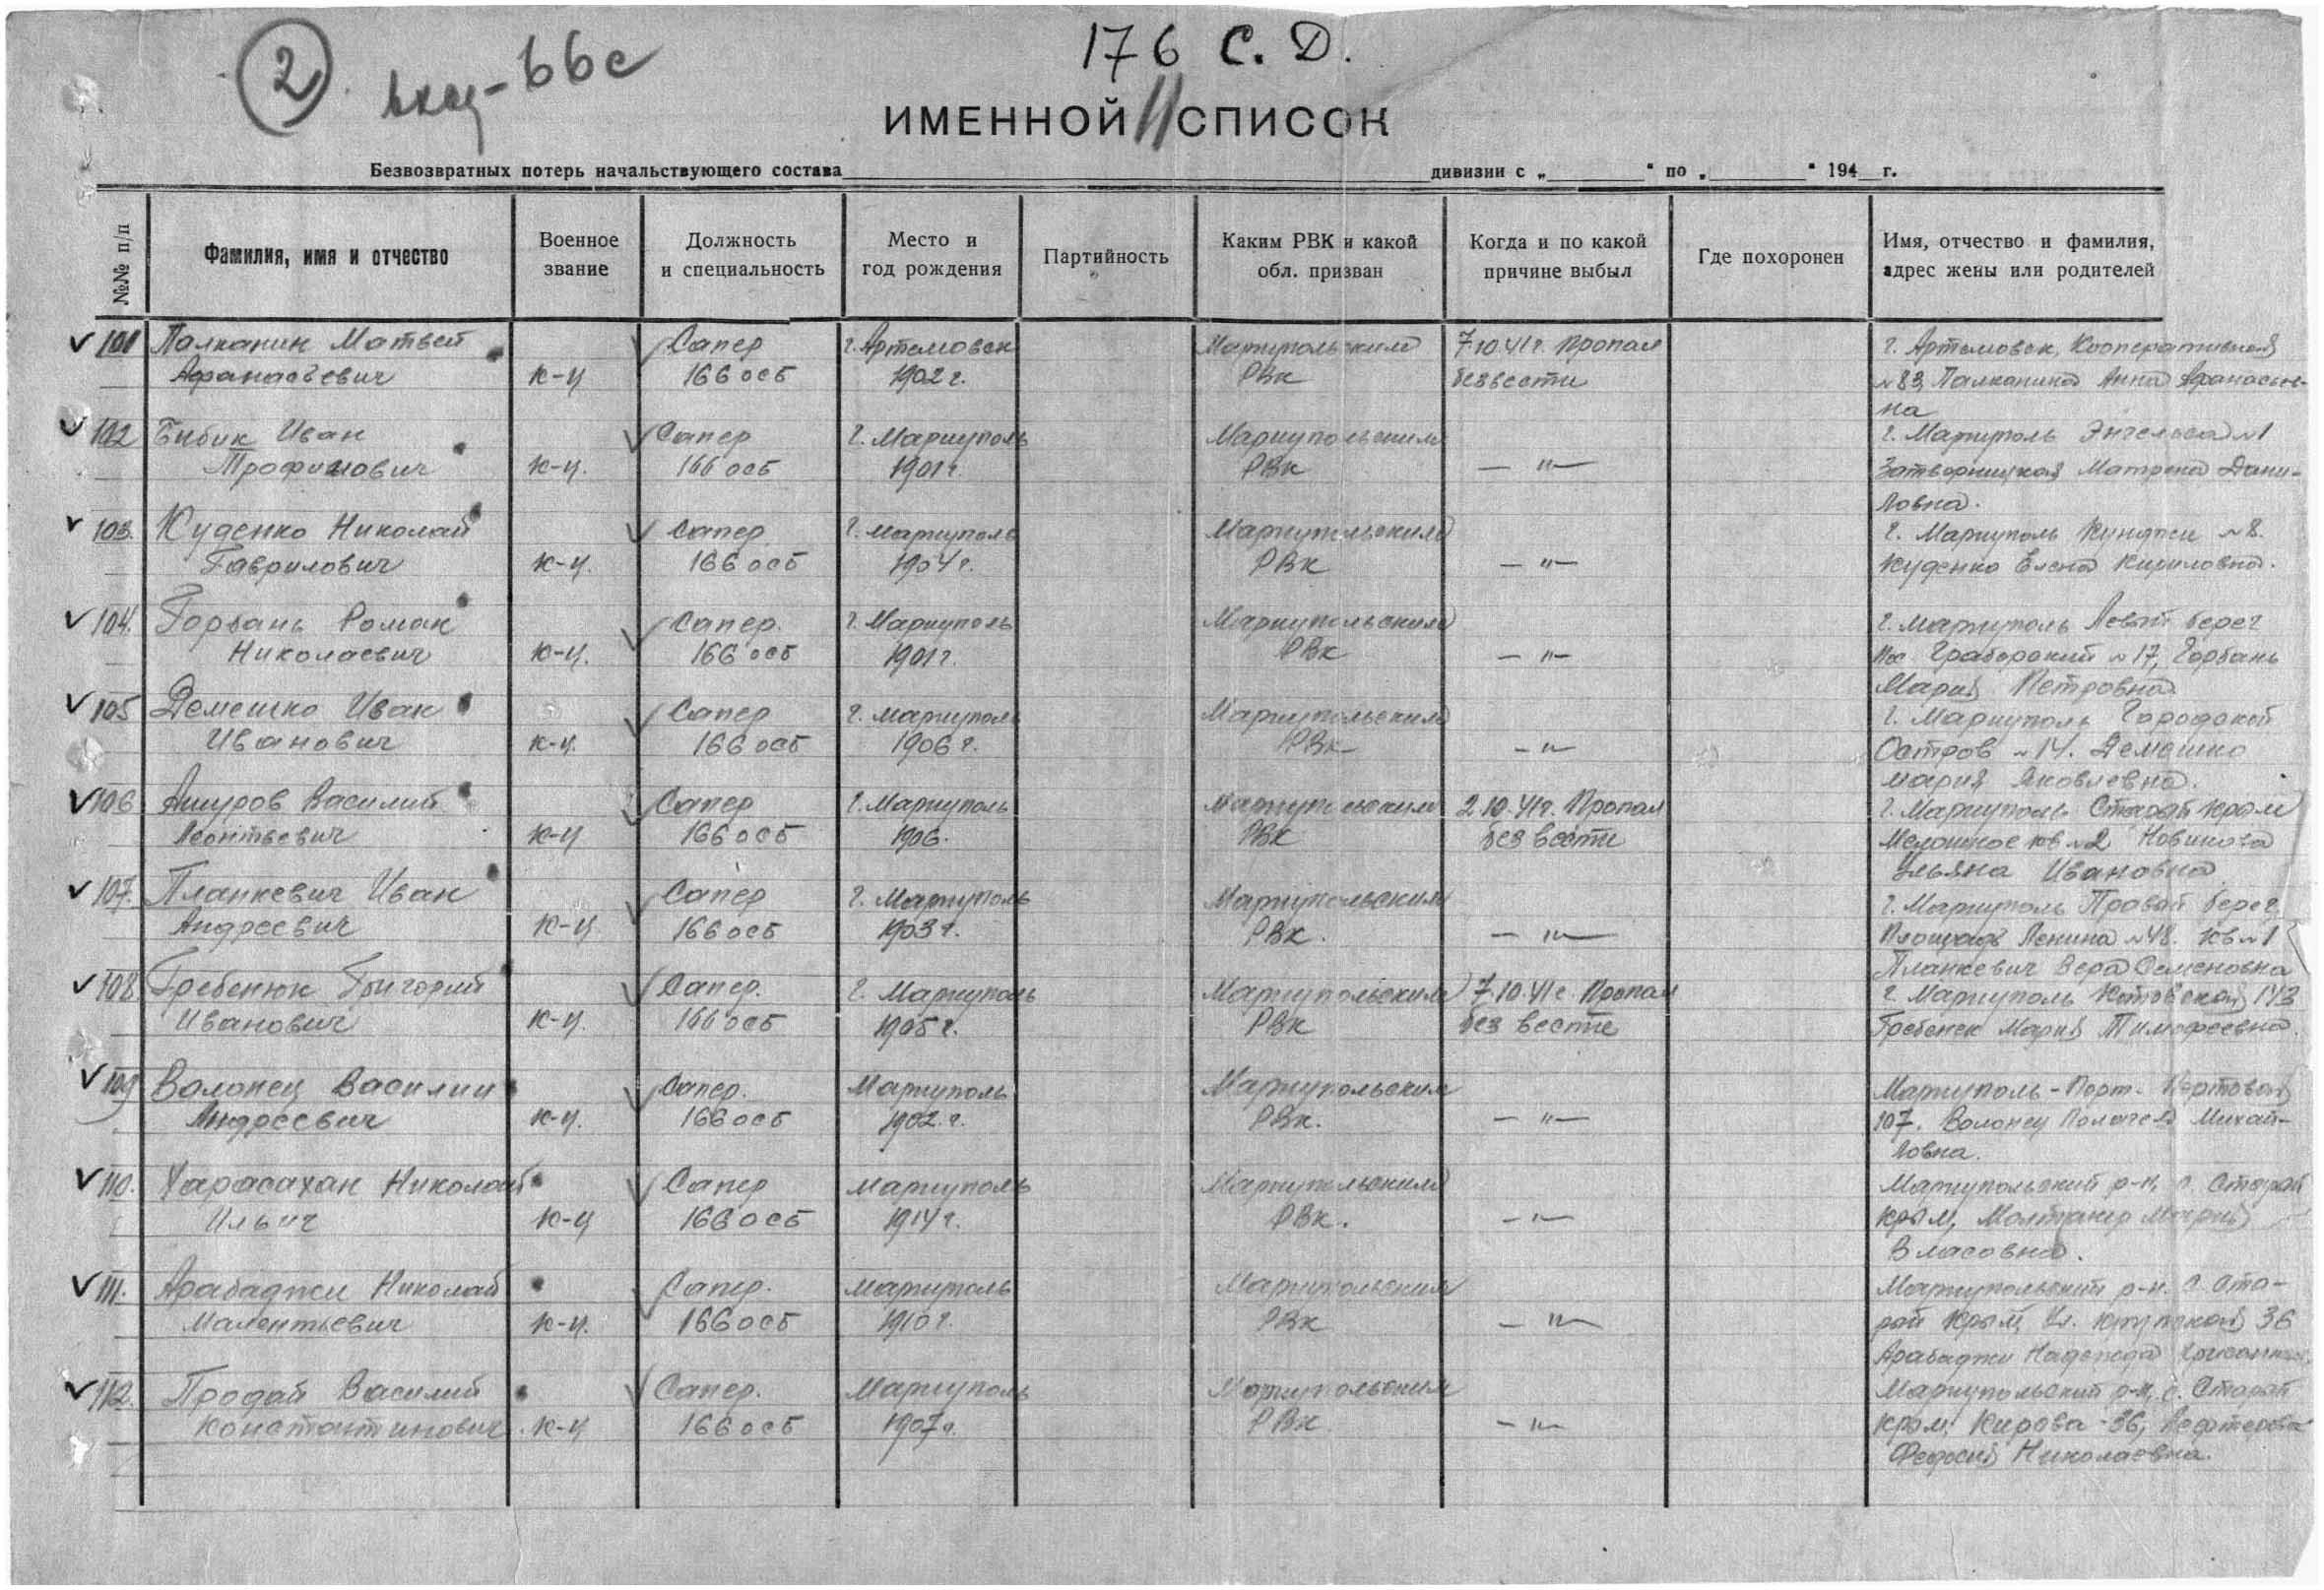 2
176 С. Д.
ИМЕННОЙ СПИСОК
Безвозвратных потерь начальствующего состава дивизии с „ “ по „ “ 194 г.
№№ п/п Фамилия, имя и отчество Военное звание Должность и специальность Место и год рождения Партийность Каким РВК и какой обл. призван Когда и по какой причине выбыл Где похоронен Имя, отчество и фамилия, адрес жены или родителей
101 Палканин Матвей Сапер г. Артемовск Мариупольским 7.10.41г. Пропал г. Артемовск, Кооперативная
Афанасьевич к-ц 166 осб 1902 г. РВК без вести №83, Палканина Анна Афанасьев-
на
102 Бибик Иван Сапер г. Мариуполь Мариупольским г. Мариуполь Энгельса №1
Трофимович к-ц. 166 осб 1901г. РВК — " — Затворницкая Матрена Дани-
ловна.
103. Куденко Николай Сапер г. Мариуполь Мариупольским г. Мариуполь Куинджи №8.
Гаврилович к-ц. 166 осб 1904г. РВК — " — Куденко Елена Кириловна.
104. Горбань Роман Сапер. г. Мариуполь Мариупольским г. Мариуполь Левый берег
Николаевич к-ц. 166 осб 1901г. РВК — " — №17, Горбань
Мария Петровна
105 Демешко Иван Сапер г. Мариуполь Мариупольским г. Мариуполь Городской
Иванович к-ц. 166 осб 1906 г. РВК — " — Остров №14. Демешко
Мария Яковлевна.
106 Ашуров Василий Сапер г. Мариуполь Мариупольским 2.10.41г. Пропал г. Мариуполь Старый Крым
Леонтьевич к-ц 166 осб 1906. РВК без вести кв №2 Новикова
Ульяна Ивановна
107. Планкевич Иван Сапер г. Мариуполь Мариупольским г. Мариуполь Правый берег
Андреевич к-ц 166 осб 1903 г. РВК. — " — Площадь Ленина №48. кв №1
Планкевич Вера Семеновна
108 Гребенюк Григорий Сапер. г. Мариуполь Мариупольским 7.10.41г. Пропал г. Мариуполь Котовская 143
Иванович к-ц. 166 осб 1905 г. РВК без вести Гребенюк Мария Тимофеевна.
109 Волонец Василий Сапер. Мариуполь Мариупольским Мариуполь - Порт. Портовая
Андреевич к-ц. 166 осб 1902. г. РВК. — " — 107. Волонец Михай-
ловна.
110. Харасахан Николай Сапер Мариуполь Мариупольским Мариупольский р-н, с. Старый
Ильич к-ц 166 осб 1914 г. РВК. — " — Крым, Мария
Власовна.
111. Арабаджи Николай Сапер. Мариуполь Мариупольским Мариупольский р-н. с. Ста-
Малентьевич к-ц. 166 осб 1910 г. РВК — " — рый Крым, Ул. 36
Арабаджи Надежда
112. Продай Василий Сапер. Мариуполь Мариупольским Мариупольский р-н, с. Старый
Константинович к-ц 166 осб 1907г. РВК — " — Крым, Кирова - 36, Лефтерова
Федосия Николаевна.